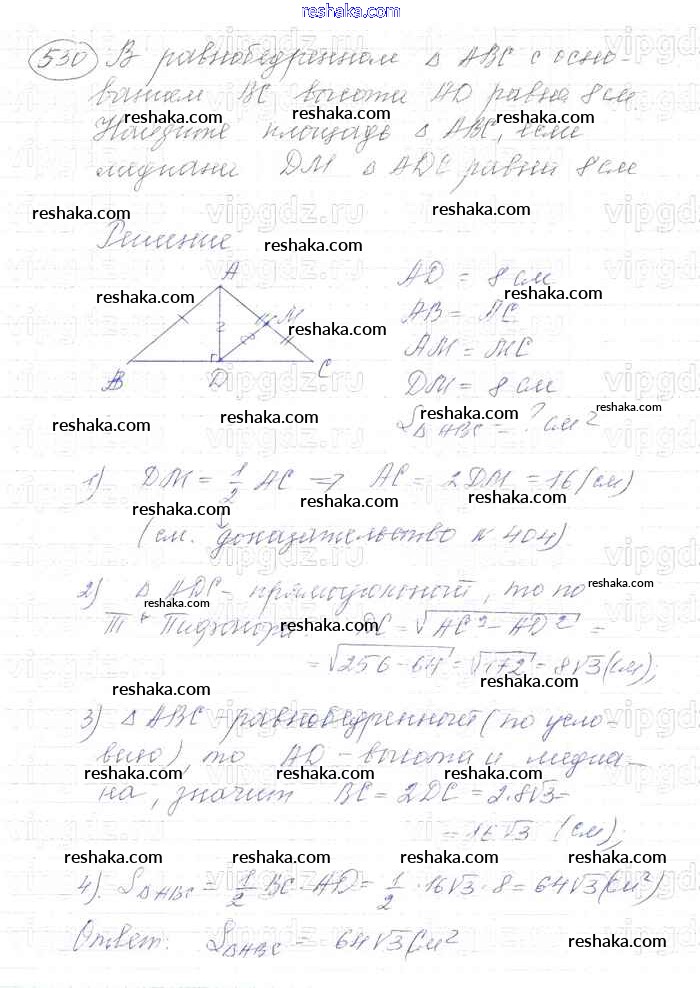 reshaka.com
530 В равнобедренном △ ABC с осно-
ванием BC высота AD равна 8 см.
Найдите площадь △ ABC, если
медиана DM △ ADC равна 8 см
Решение
A
M
B
D
C
AD = 8 см
AB = AC
AM = MC
DM = 8 см
S△ABC = ? см²
1) DM = 1/2 AC => AC = 2DM = 16 (см)
(см. доказательство № 404)
2) △ ADC - прямоугольный, то по
Т. Пифагора: DC = √AC² - AD² =
= √256 - 64 = √172 = 8√3 (см);
3) △ ABC - равнобедренный (по усло-
вию), то AD - высота и медиа-
на, значит BC = 2DC = 2·8√3 =
= 16√3 (см);
4). S△ABC = 1/2 BC·AD = 1/2 · 16√3 · 8 = 64√3 (см²)
Ответ: S△ABC = 64√3 см²